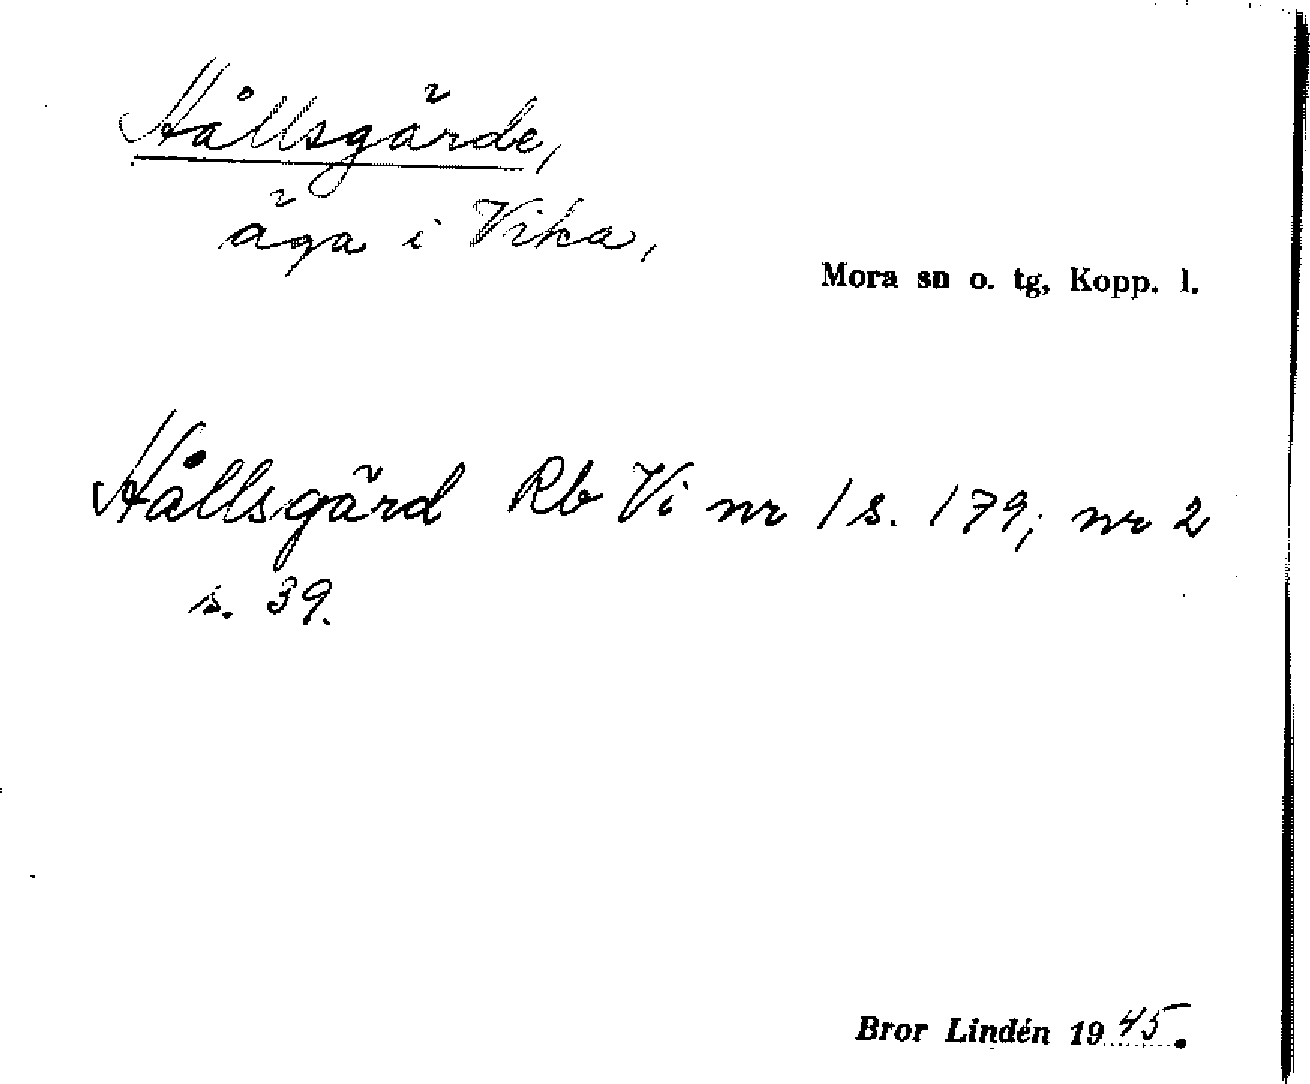 Hållsgärde,
äga i Vika,
Mora sn o. tg, Kopp. l.
Hållsgärd Rb Vi nr 1 s. 179; nr 2
s. 39.
Bror Lindén 1945.